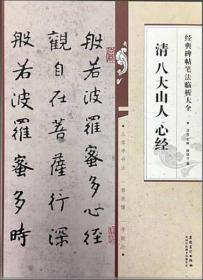 经典碑帖笔法临析大全
清 八大山人 心经
般若波羅蜜多心經
觀自在菩薩行深
般若波羅蜜多時